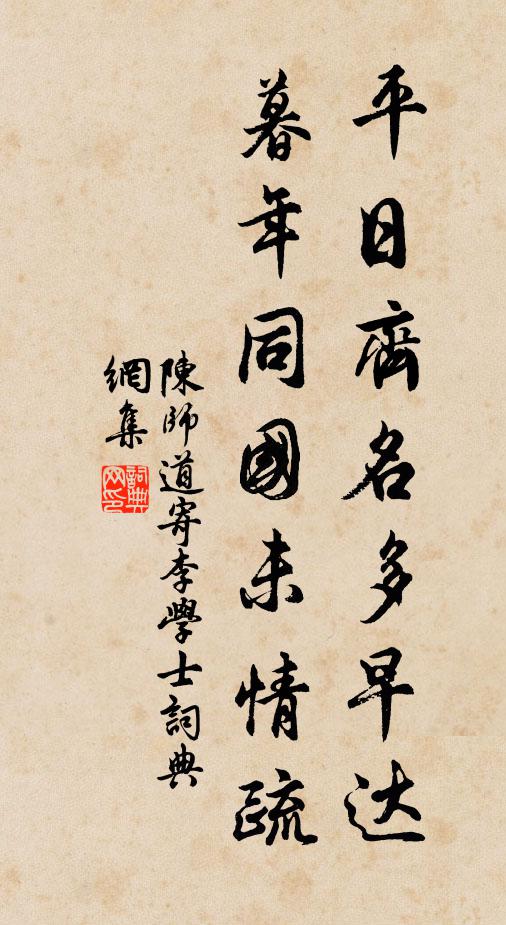 平日齊名多早达
暮年同國未情疏
陳師道寄李學士詞典
網集
詞典網印